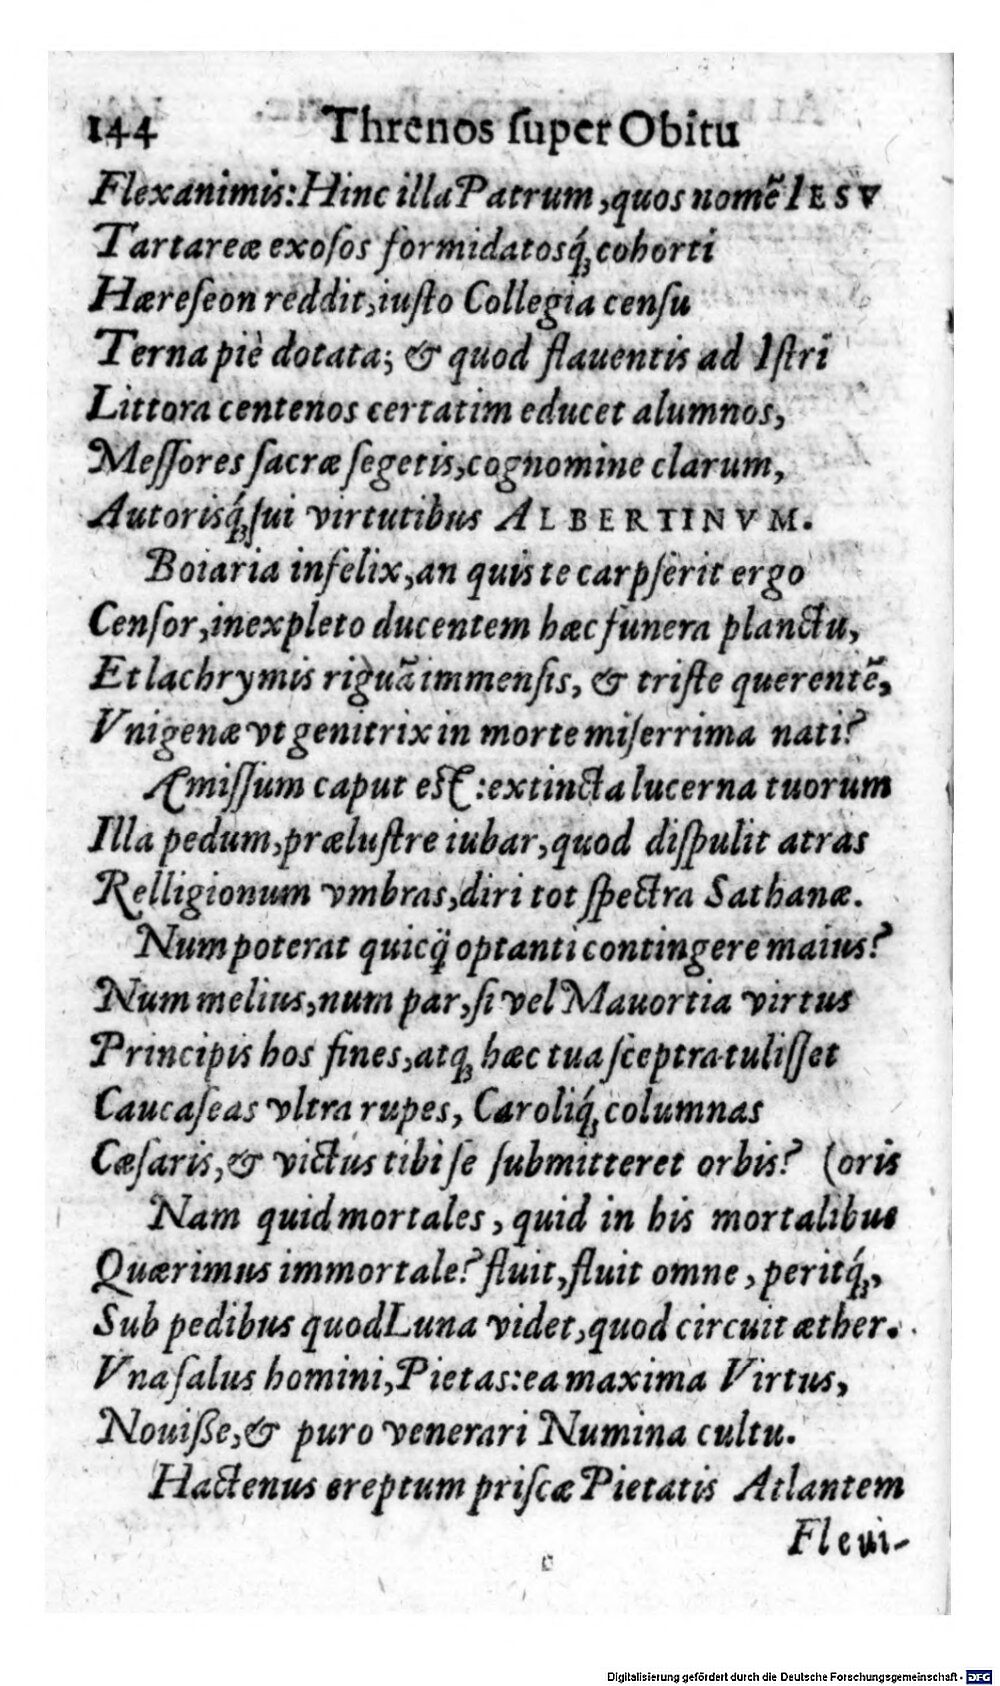 144 Threnos ſuper Obitu
Flexanimis: Hinc illa Patrum, quos nomẽ IESV
Tartareæ exoſos formidatosq́ꝫ cohorti
Hæreſeon reddit, iuſto Collegia cenſu
Terna piè dotata; & quod flauentis ad Iſtri
Littora centenos certatim educet alumnos,
Meſſores ſacræ ſegetis, cognomine clarum,
Autorisq́ꝫ ſui virtutibus ALBERTINVM.
Boiaria infelix, an quis te carpſerit ergo
Cenſor, inexpleto ducentem hæc funera planctu,
Et lachrymis riguã immenſis, & triſte querentẽ,
Vnigenæ vt genitrix in morte miſerrima nati?
Æmiſſum caput eſt: extincta lucerna tuorum
Illa pedum, præluſtre iubar, quod diſpulit atras
Relligionum vmbras, diri tot ſpectra Sathanæ.
Num poterat quicq̃ optanti contingere maius?
Num melius, num par, ſi vel Mauortia virtus
Principis hos fines, atqꝫ hæc tua ſceptra tuliſſet
Caucaſeas vltra rupes, Caroliq́ꝫ columnas
Cæſaris, & victus tibi ſe ſubmitteret orbis? (oris
Nam quid mortales, quid in his mortalibus
Quærimus immortale? fluit, fluit omne, peritq́ꝫ,
Sub pedibus quod Luna videt, quod circuit æther.
Vna ſalus homini, Pietas: ea maxima Virtus,
Nouiße, & puro venerari Numina cultu.
Hactenus ereptum priſcæ Pietatis Atlantem
Fleui-
Digitalisierung gefördert durch die Deutsche Forschungsgemeinschaft - DFG